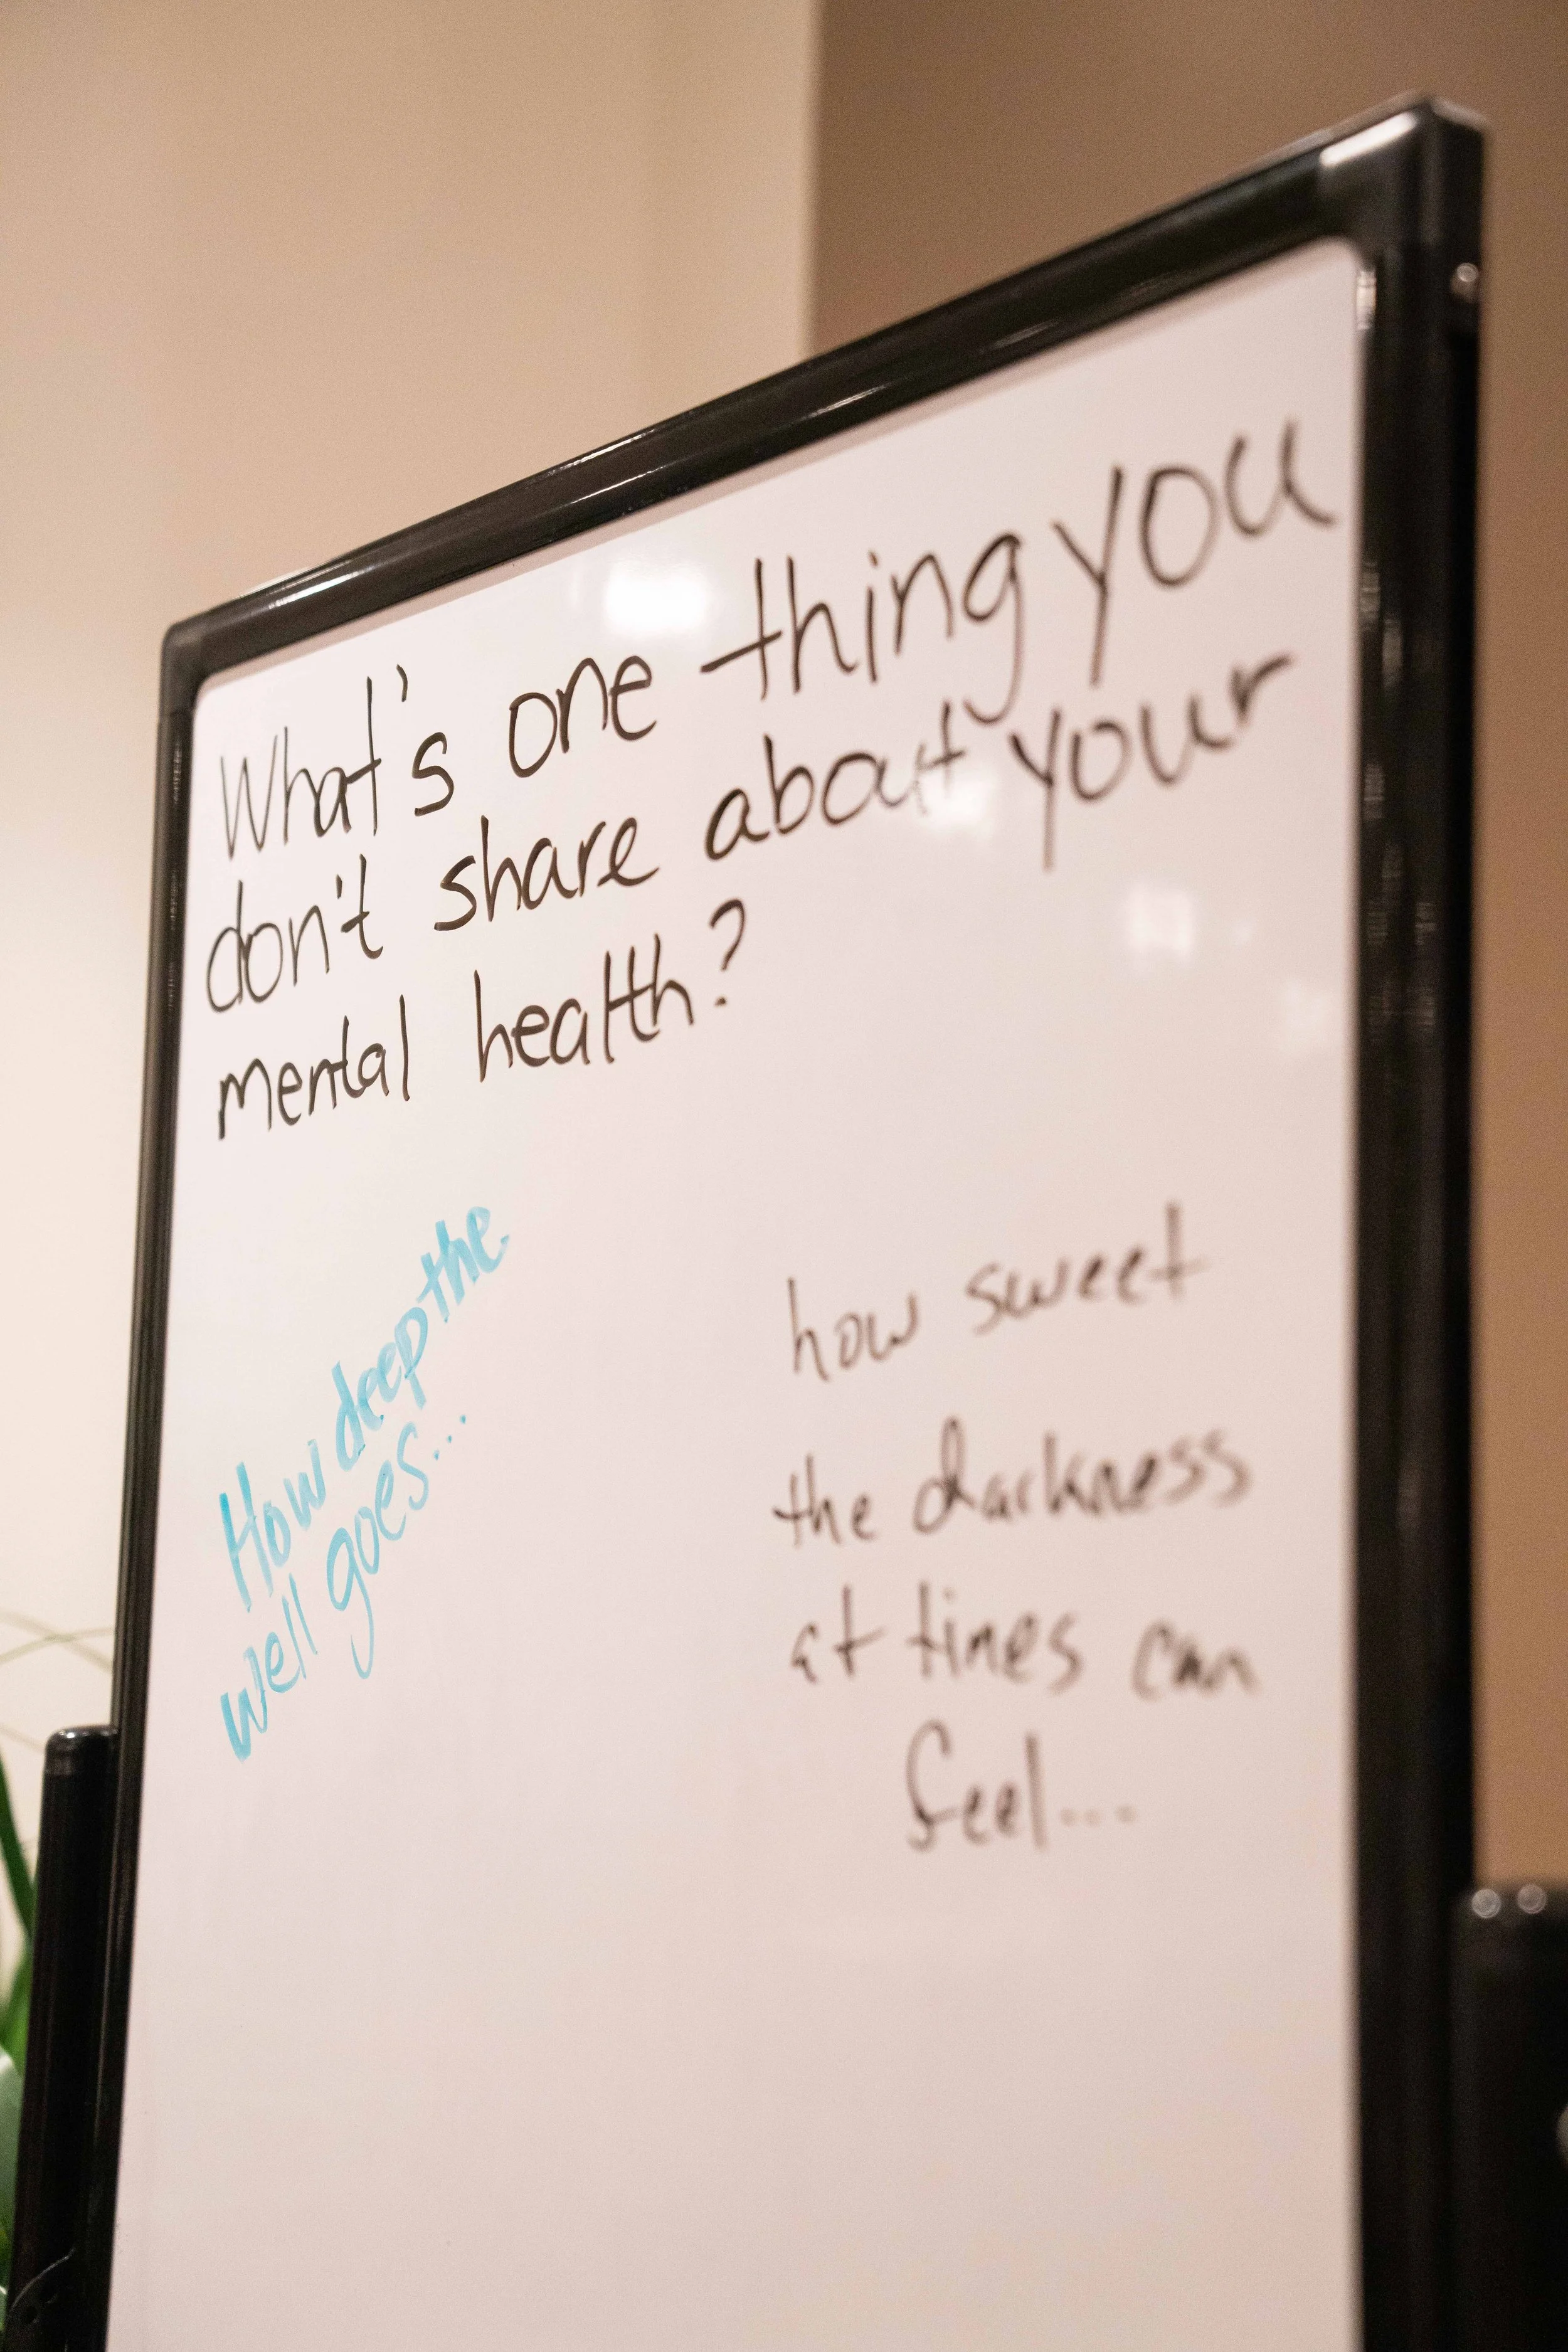 What's one thing you
don't share about your
mental health?
How deep the
well goes...
how sweet
the darkness
at times can
feel...